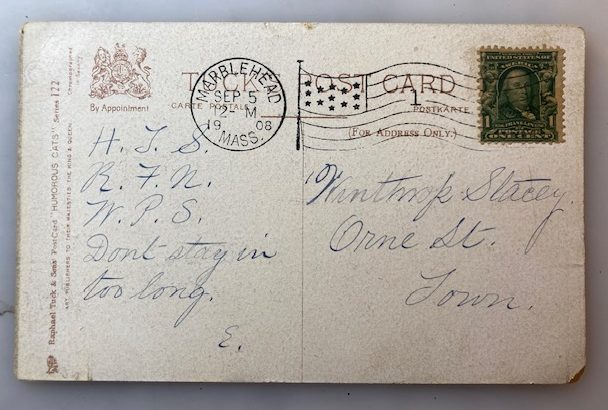 TUCK POST CARD
CARTE POSTALE
POSTKARTE
(FOR ADDRESS ONLY.)
By Appointment
Raphael Tuck & Sons' Post Card "HUMOROUS CATS" Series 122
ART PUBLISHERS TO THEIR MAJESTIES THE KING & QUEEN.
MARBLEHEAD
SEP 5
12 M
19 08
MASS.
1
UNITED STATES OF
AMERICA
1 1
POSTAGE
ONE CENT
H. J. S.
R. F. N.
W. P. S.
Dont stay in
too long.
E.
Winthrop Stacey.
Orne St.
Town.